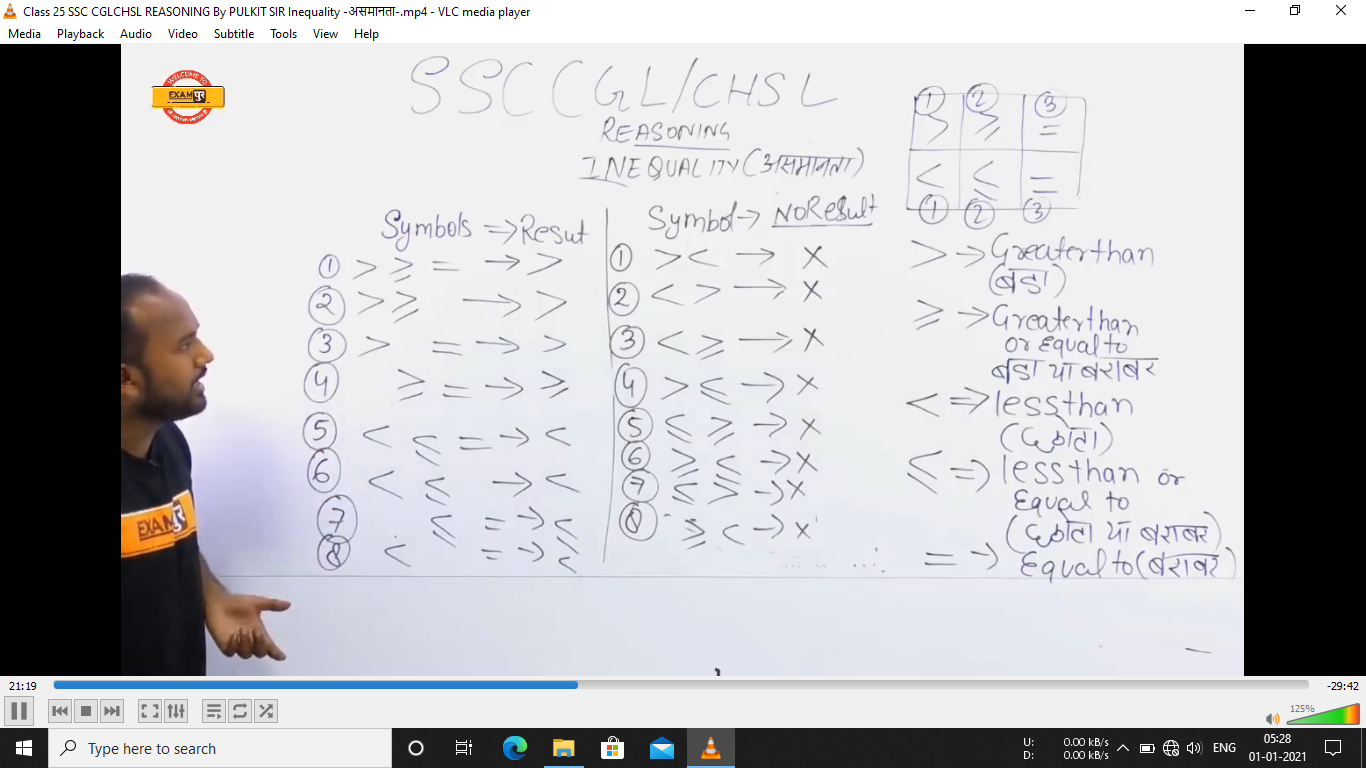 Class 25 SSC CGLCHSL REASONING By PULKIT SIR Inequality -असमानता-.mp4 - VLC media player
Media Playback Audio Video Subtitle Tools View Help
WELCOME TO
EXAMपुर
SSC CGL/CHSL
REASONING
INEQUALITY (असमानता)
① ② ③
> ≥ =
< ≤ =
① ② ③
Symbols ⇒ Resut
① > ≥ = → >
② > ≥ → >
③ > = → >
④ ≥ = → ≥
⑤ < ≤ = → <
⑥ < ≤ → <
⑦ ≤ = → ≤
⑧ < = → <
Symbol → NoResult
① > < → ×
② < > → ×
③ < ≥ → ×
④ > ≤ → ×
⑤ ≤ ≥ → ×
⑥ ≥ ≤ → ×
⑦ ≤ > → ×
⑧ ≥ < → ×
> → Greaterthan
(बड़ा)
≥ → Greaterthan
or Equal to
बड़ा या बराबर
< ⇒ lessthan
(छोटा)
≤ ⇒ less than or
Equal to
(छोटा या बराबर)
= → Equal to (बराबर)
EXAMपुर
21:19
-29:42
125%
Type here to search
U: 0.00 kB/s
D: 0.00 kB/s
ENG
05:28
01-01-2021